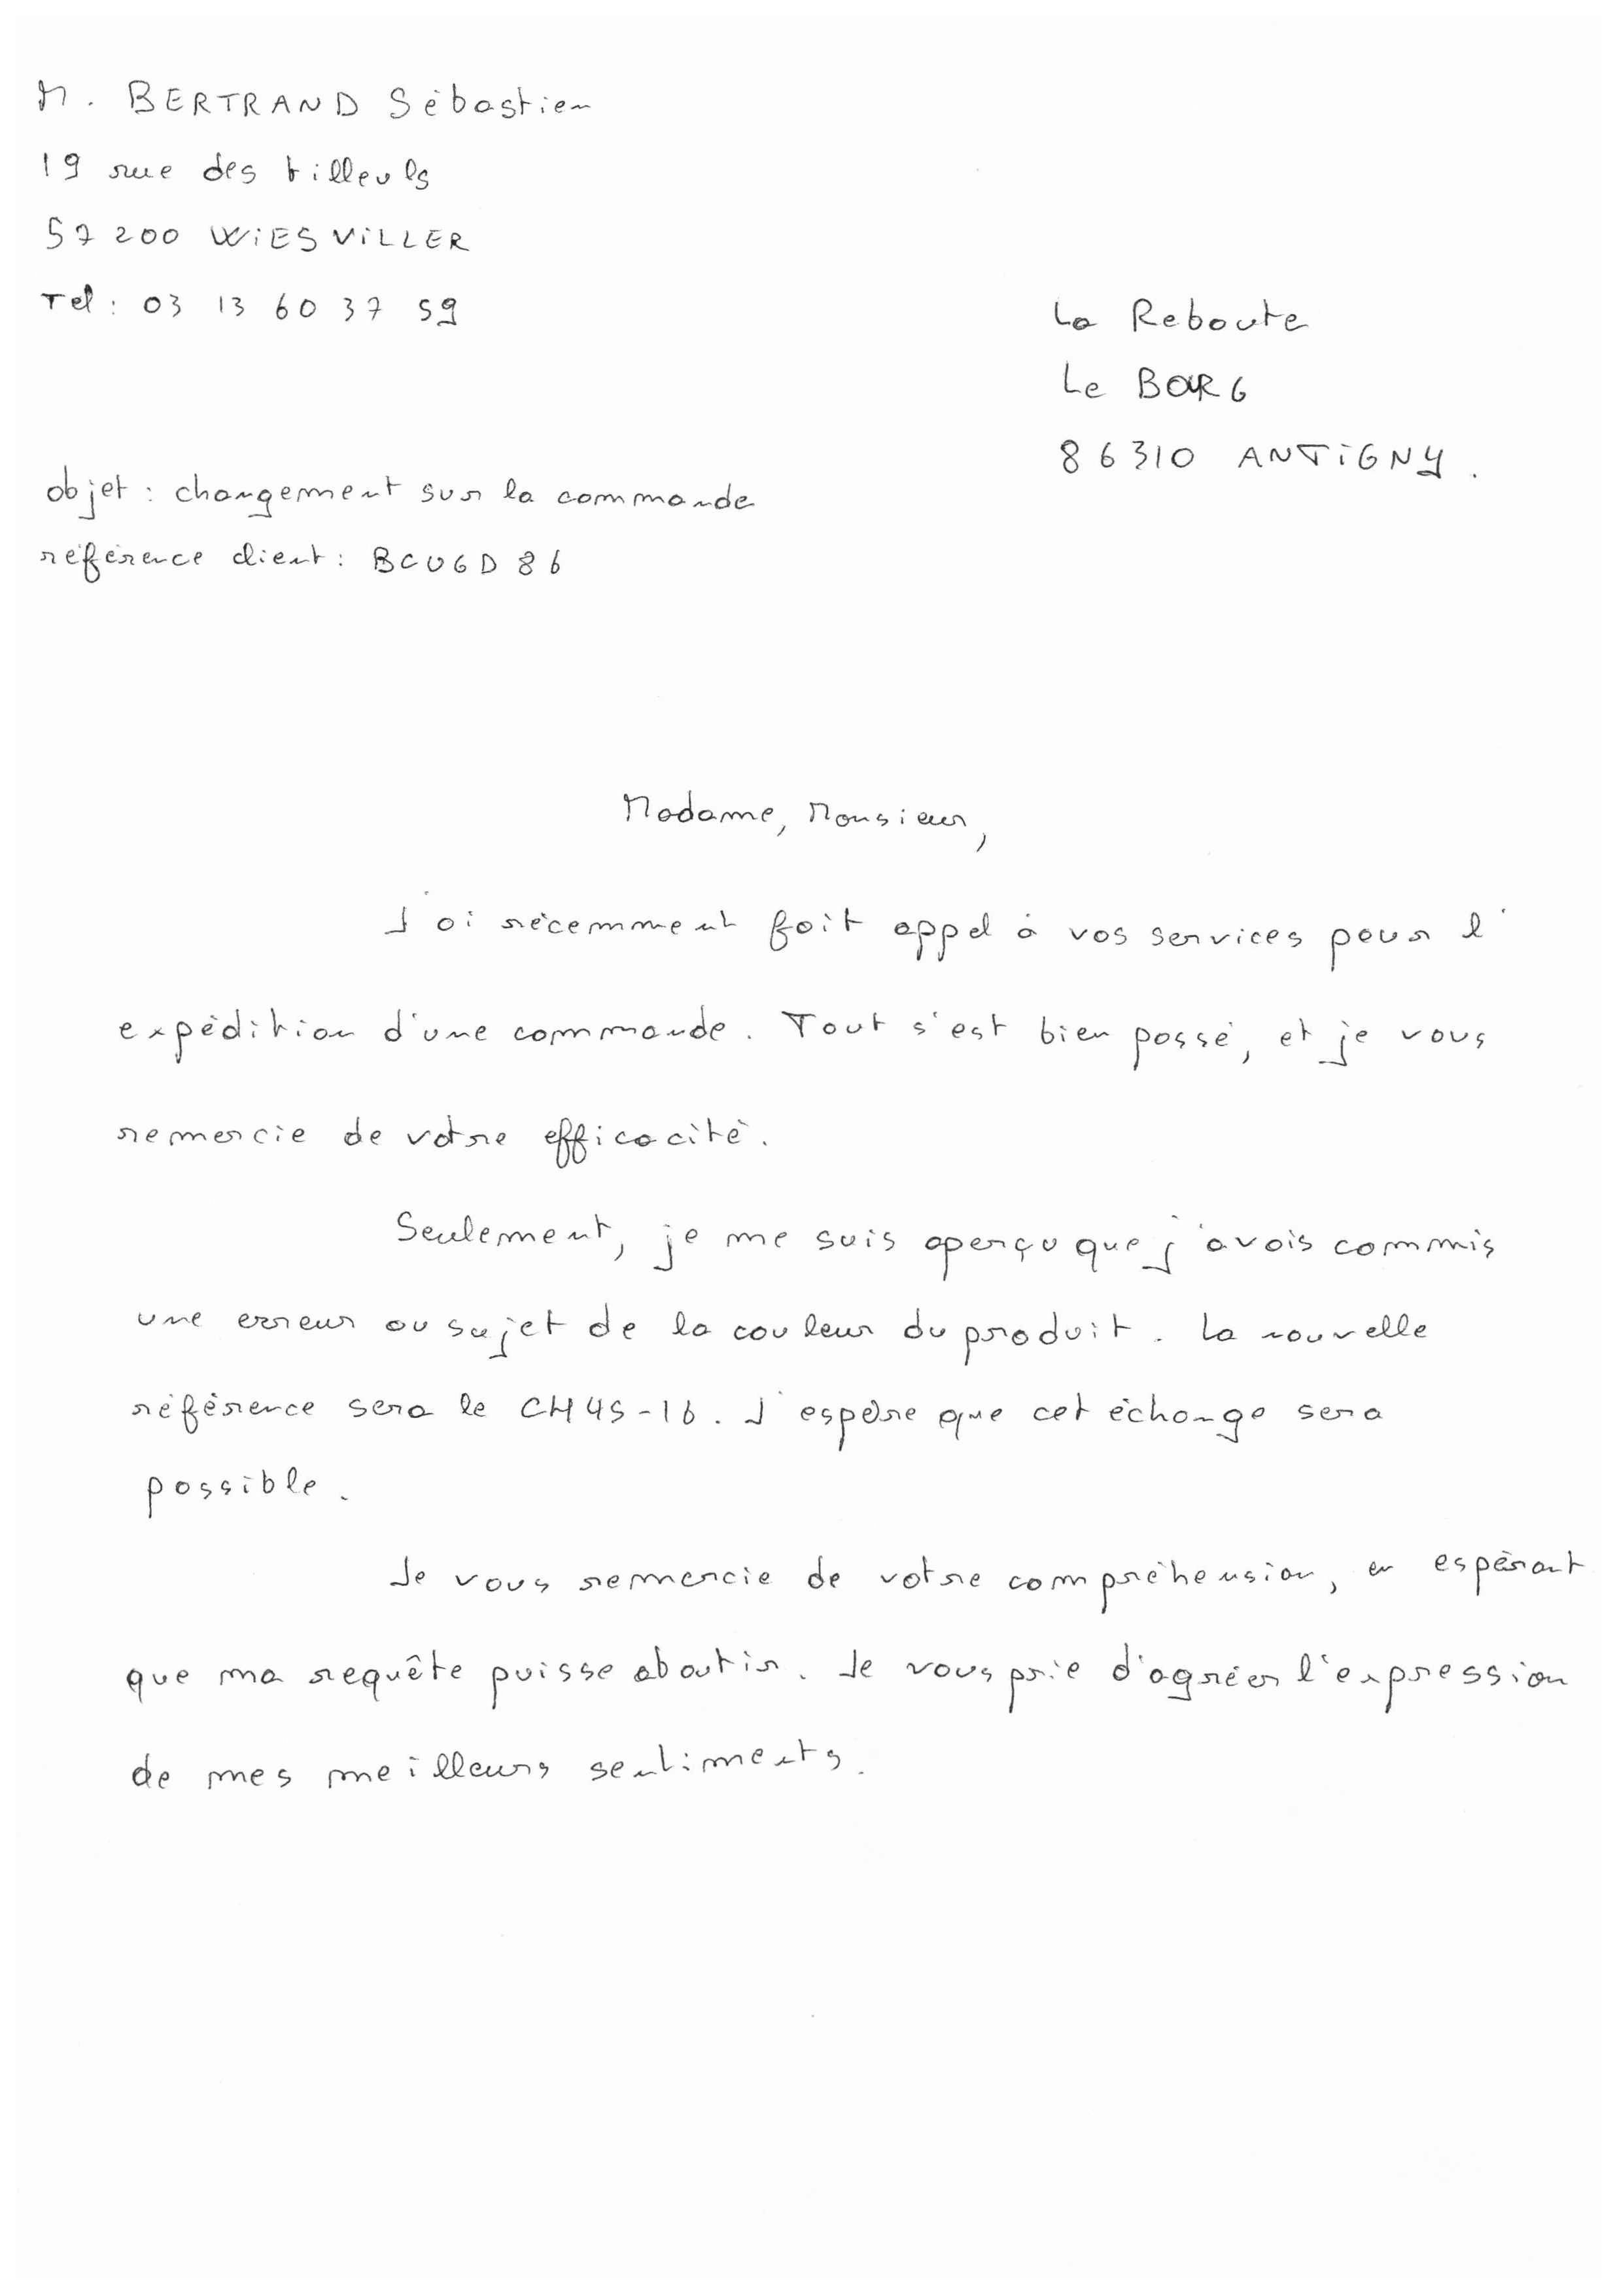 M. BERTRAND Sébastien
19 rue des tilleuls
57200 WIESVILLER
Tel : 03 13 60 37 59
La Reboute
Le BOURG
86310 ANTIGNY.
objet : changement sur la commande
référence client : BCUGD86
Madame, Monsieur,
J'ai récemment fait appel à vos services pour l'
expédition d'une commande. Tout s'est bien passé, et je vous
remercie de votre efficacité.
Seulement, je me suis aperçu que j'avais commis
une erreur au sujet de la couleur du produit. La nouvelle
référence sera le CH4S-16. J'espère que cet échange sera
possible.
Je vous remercie de votre compréhension, en espérant
que ma requête puisse aboutir. Je vous prie d'agréer l'expression
de mes meilleurs sentiments.